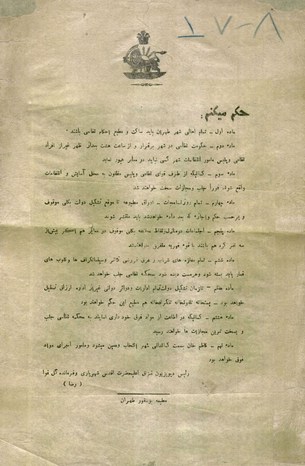 حکم میکنم:
ماده اول – تمام اهالی شهر طهران باید ساکت و مطیع احکام نظامی باشند
ماده دوم – حکومت نظامی در شهر برقرار و از ساعت هشت بعدازظهر غیر از افراد
نظامی و پلیس مأمور انتظامات شهر کسی نباید در معابر عبور نماید
ماده سوم – کسانیکه از طرف قوای نظامی و پلیس مظنون به مخل آسایش و انتظامات
واقع شوند فوراً جلب و مجازات سخت خواهند شد
ماده چهارم – تمام روزنامجات، اوراق مطبوعه تا موقع تشکیل دولت بکلی موقوف
و برحسب حکم و اجازه که بعد داده خواهد شد باید منتشر شوند
ماده پنجم – اجتماعات در منازل و نقاط مختلفه بکلی موقوف در معابر هم اگر بیش از
سه نفر گرد هم باشند با قوه قهریه متفرق
ماده ششم – تمام مغازه های شراب فروشی و عرق فروشی تآتر و سینما فتوگرافها و کلوپ های
قمار باید بسته شود و هر مست دیده شود به محکمه نظامی جلب خواهد شد
ماده هفتم – تا زمان تشکیل دولت تمام ادارات و دوائر دولتی غیر از اداره ارزاق تعطیل
خواهد بود – پستخانه تلفونخانه تلگرافخانه هم مطیع این حکم خواهند بود
ماده هشتم – کسانیکه در اطاعت از مواد فوق خود داری نمایند به محکمه نظامی جلب
و به سخت ترین مجازاتها خواهند رسید
ماده نهم – کاظم خان بسمت کماندانی شهر انتخاب و معین میشود و مأمور اجرای مواد
فوق خواهد بود
رئیس دیویزیون قزاق اعلیحضرت اقدس شهریاری و فرمانده کل قوا
(رضا)
مطبعه طهران